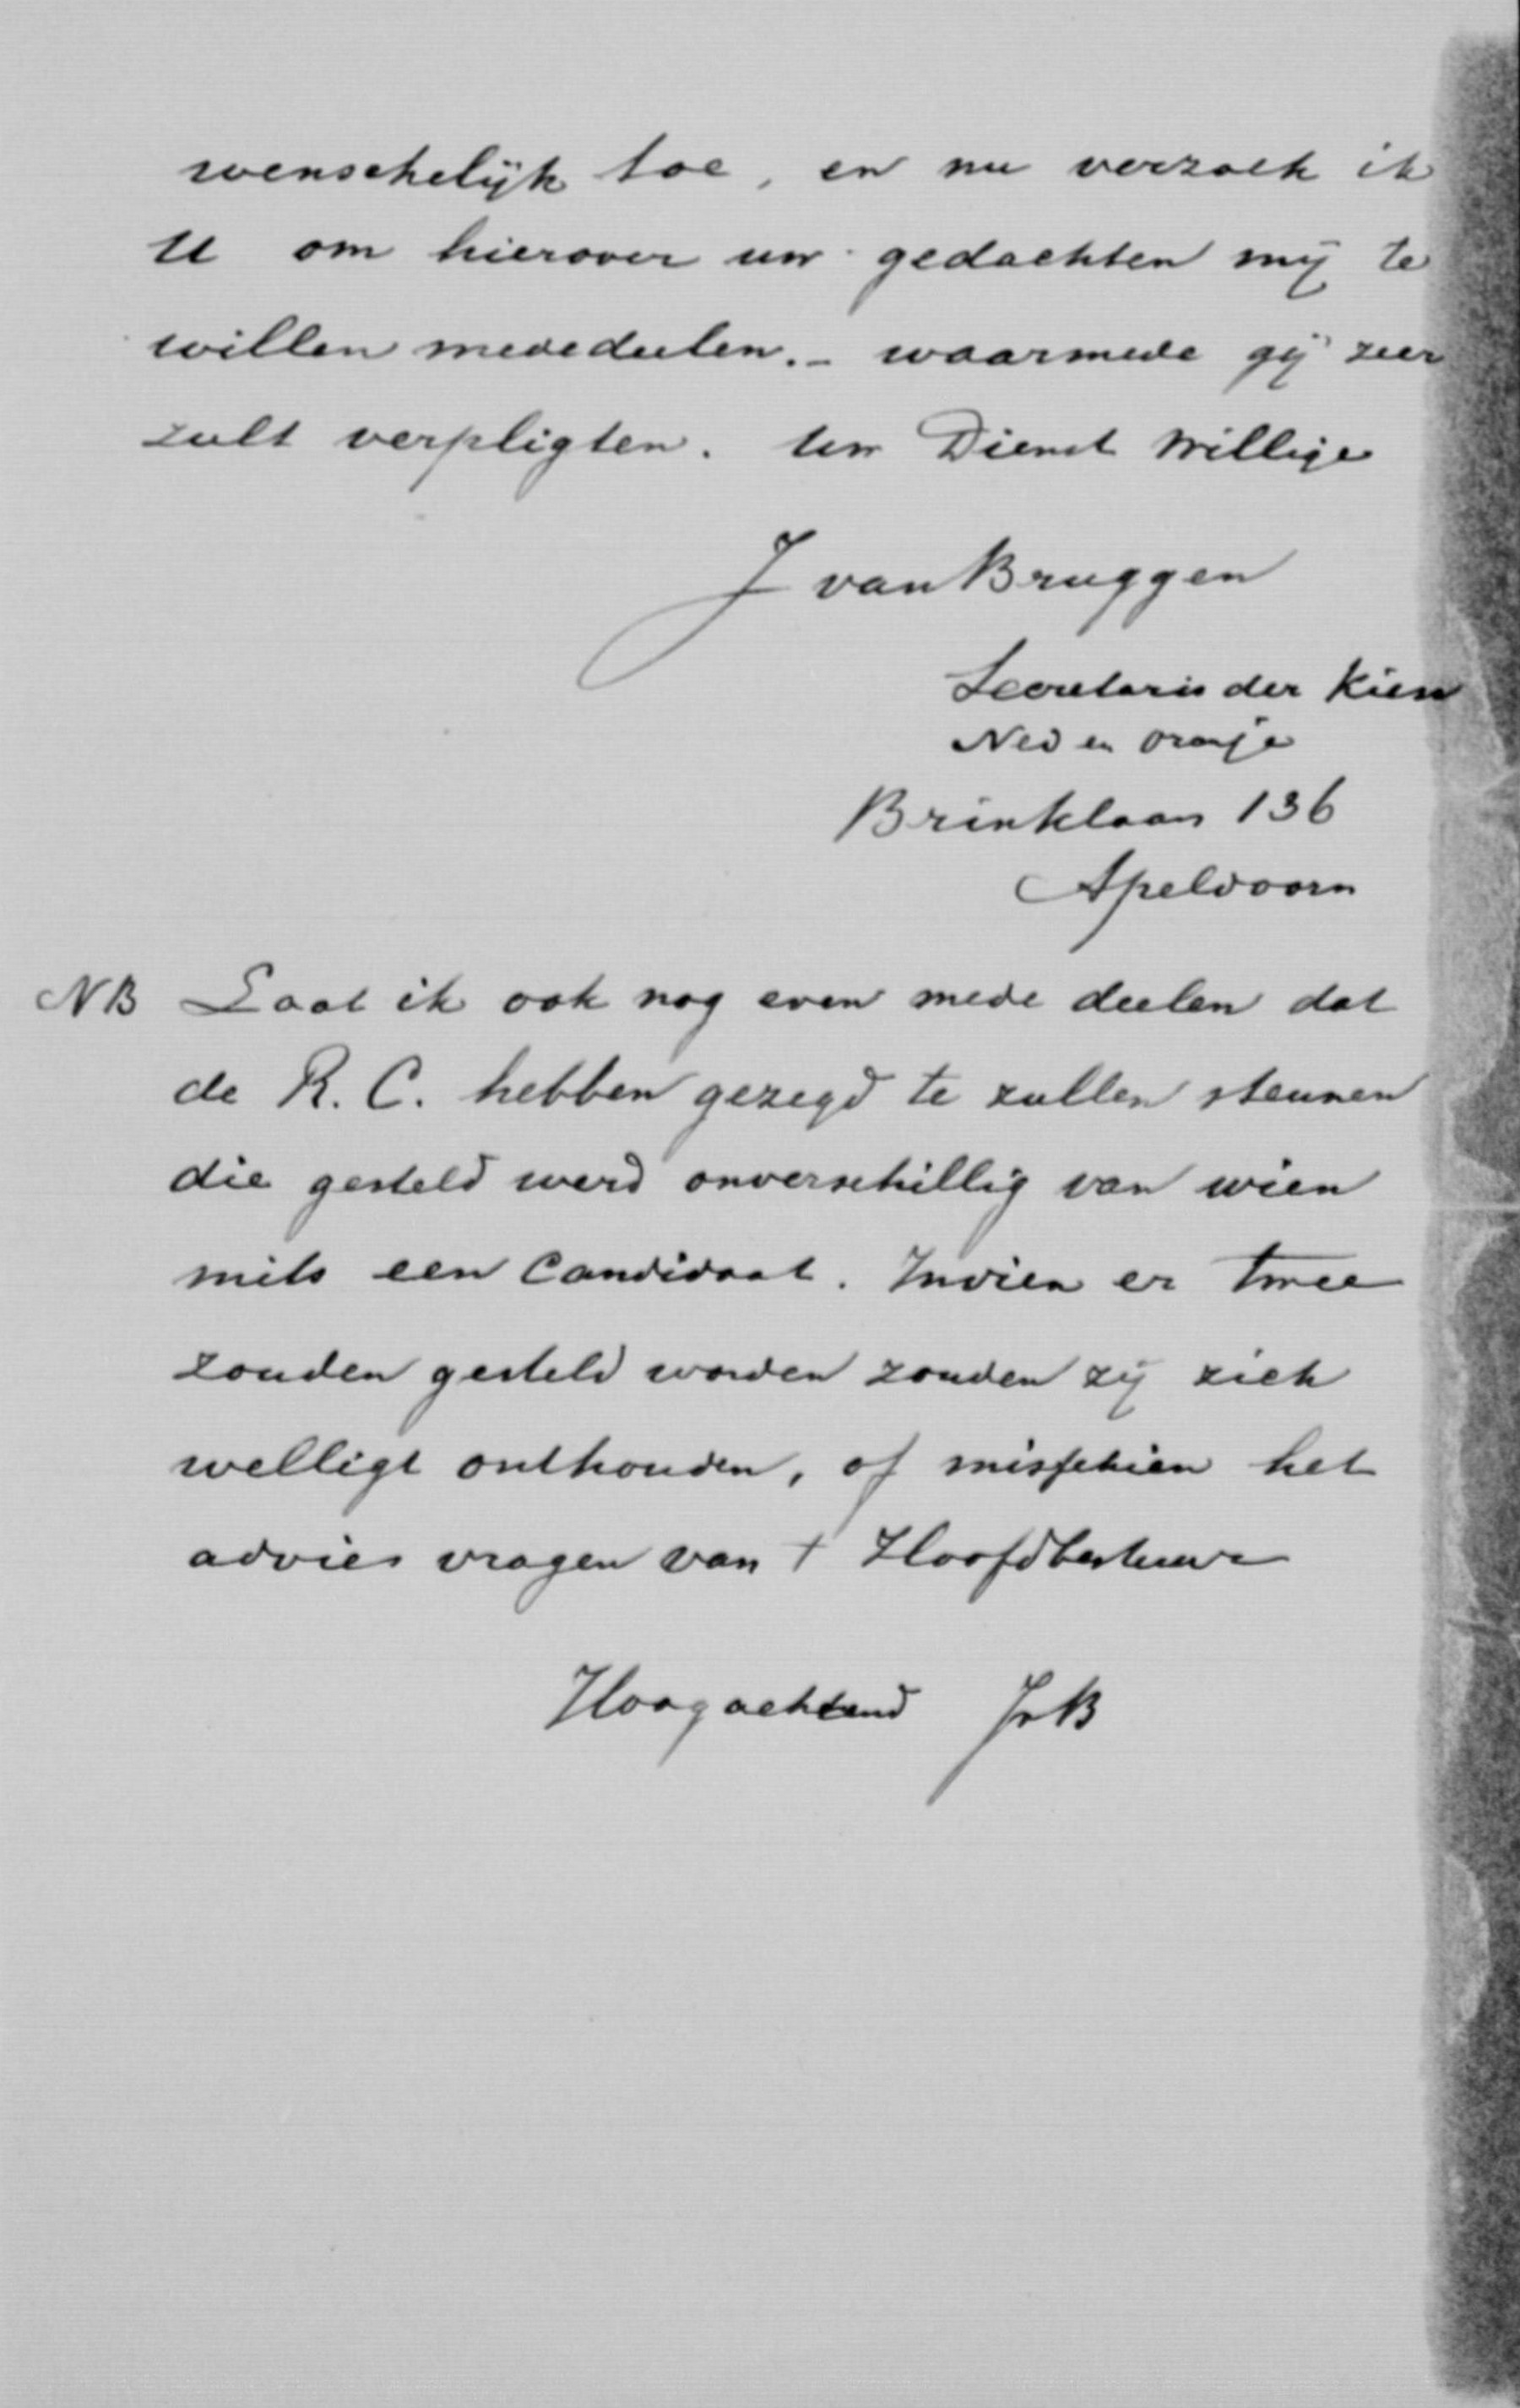 wenschelijk toe, en nu verzoek ik
U om hierover uw gedachten mij te
willen mededeelen. – waarmede gij zeer
zult verpligten. Uw Dienst Willige
J van Bruggen
Secretaris der Kiesv
Ned en Oranje
Brinklaan 136
Apeldoorn
NB Laat ik ook nog even mede deelen dat
de R. C. hebben gezegd te zullen steunen
die gesteld werd onverschillig van wien
mits een Candidaat. Indien er twee
zouden gesteld worden zouden zij zich
welligt onthouden, of misschien het
advies vragen van t Hoofdbestuur
Hoogachtend JvB